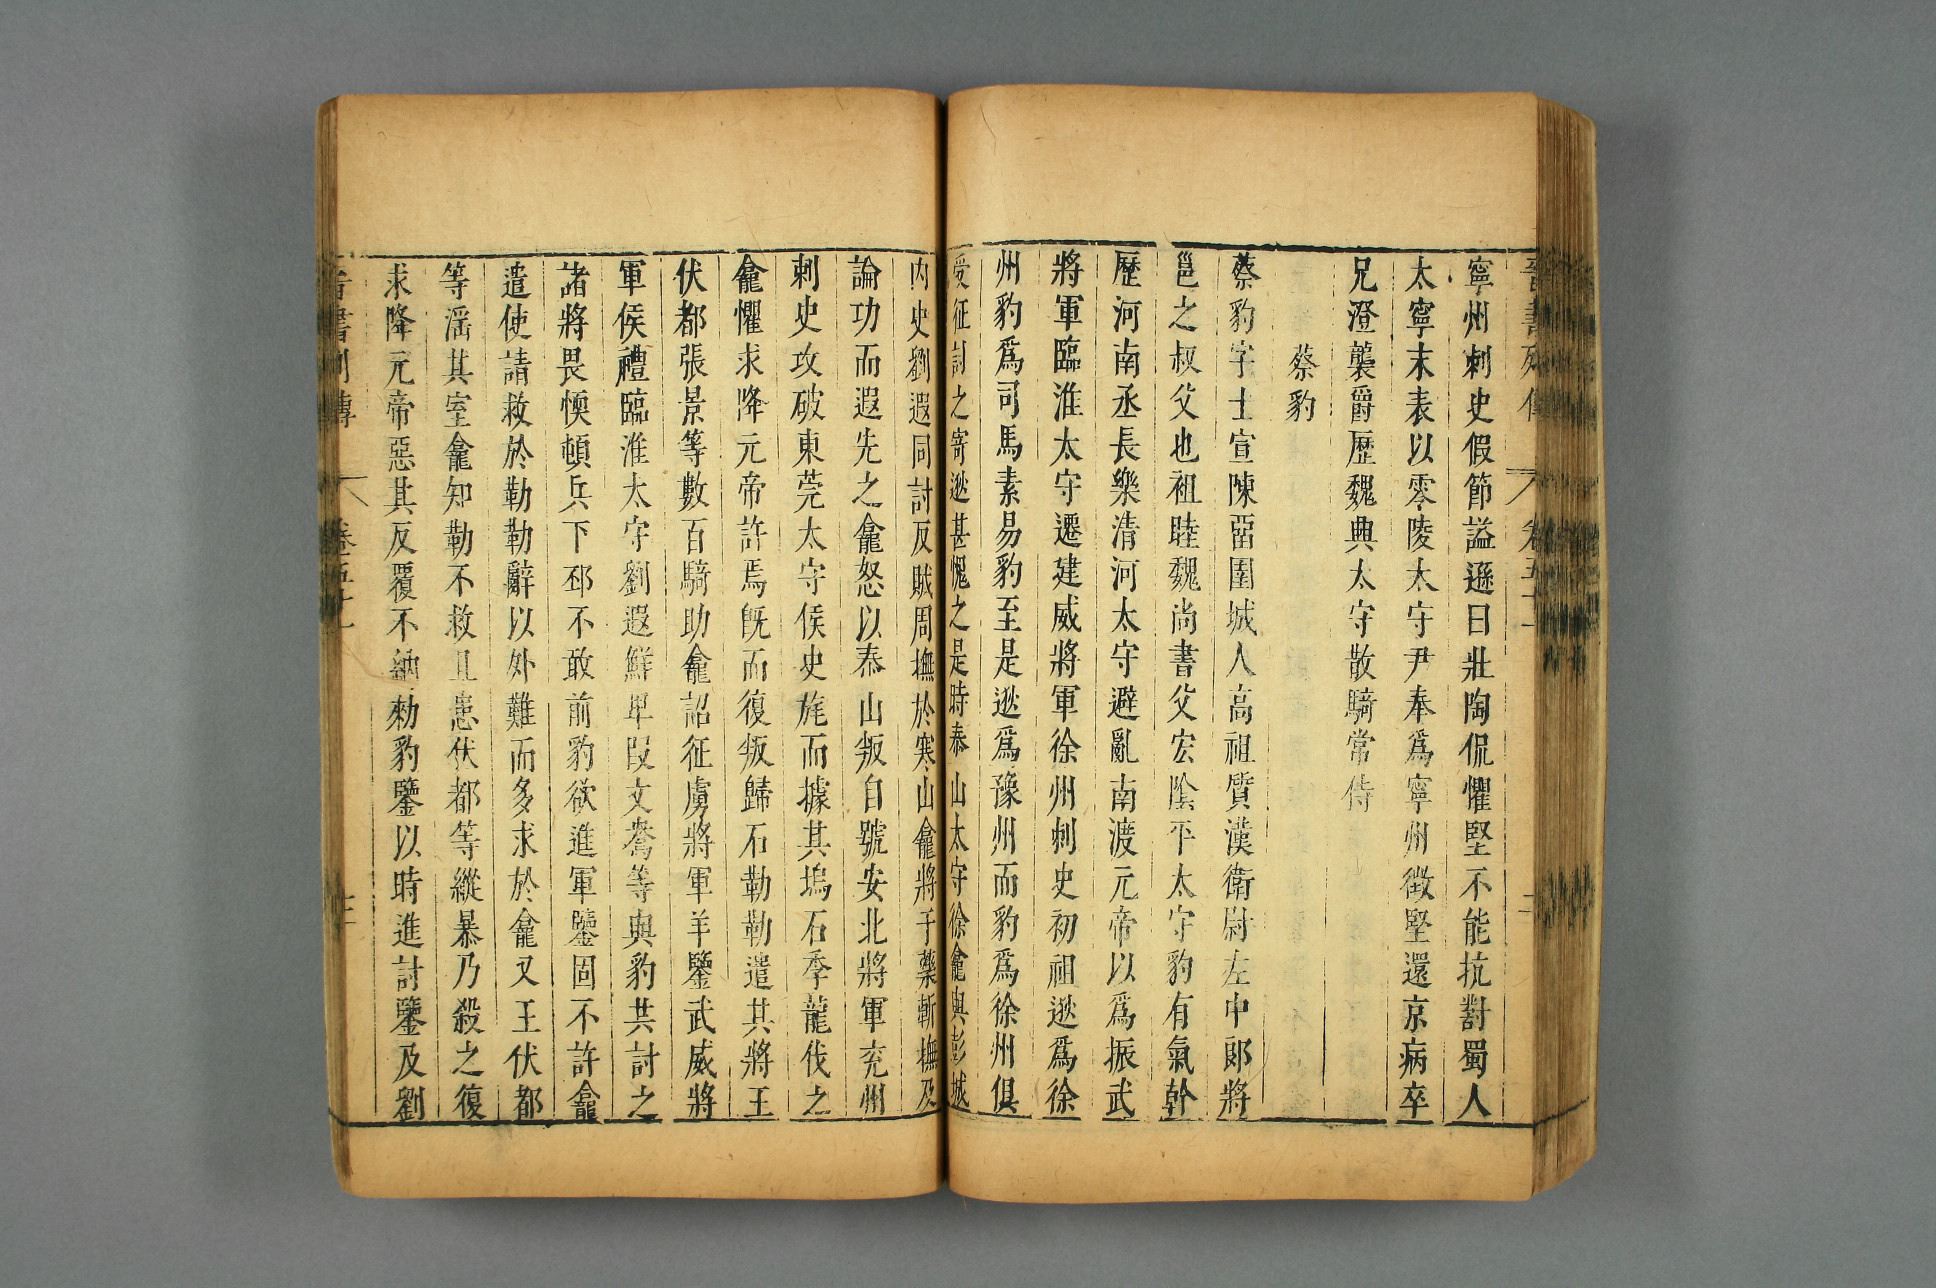 晉書列傳 卷五十一
寧州刺史假節謚遜曰壯陶侃懼堅不能抗對蜀人
太寧末表以零陵太守尹奉爲寧州徵堅還京病卒
兄澄襲爵歷魏興太守散騎常侍
蔡豹
蔡豹字士宣陳畱圉城人高祖質漢衛尉左中郎將
邕之叔父也祖睦魏尚書父宏陰平太守豹有氣幹
歷河南丞長樂清河太守避亂南渡元帝以爲振武
將軍臨淮太守遷建威將軍徐州刺史初祖逖爲徐
州豹爲司馬素易豹至是逖爲豫州而豹爲徐州俱
受征討之寄逖甚愧之是時泰山太守徐龕與彭城
內史劉遐同討反賊周撫於寒山龕將于藥斬撫及
論功而遐先之龕怒以泰山叛自號安北將軍兗州
刺史攻破東莞太守侯史旄而據其塢石季龍伐之
龕懼求降元帝許焉旣而復叛歸石勒勒遣其將王
伏都張景等數百騎助龕詔征虜將軍羊鑒武威將
軍侯禮臨淮太守劉遐鮮卑段文鴦等與豹共討之
諸將畏愞頓兵下邳不敢前豹欲進軍鑒固不許龕
遣使請救於勒勒辭以外難而多求於龕又王伏都
等滛其室龕知勒不救且患伏都等縱暴乃殺之復
求降元帝惡其反覆不納勑豹鑒以時進討鑒及劉
晉書列傳 卷五十一